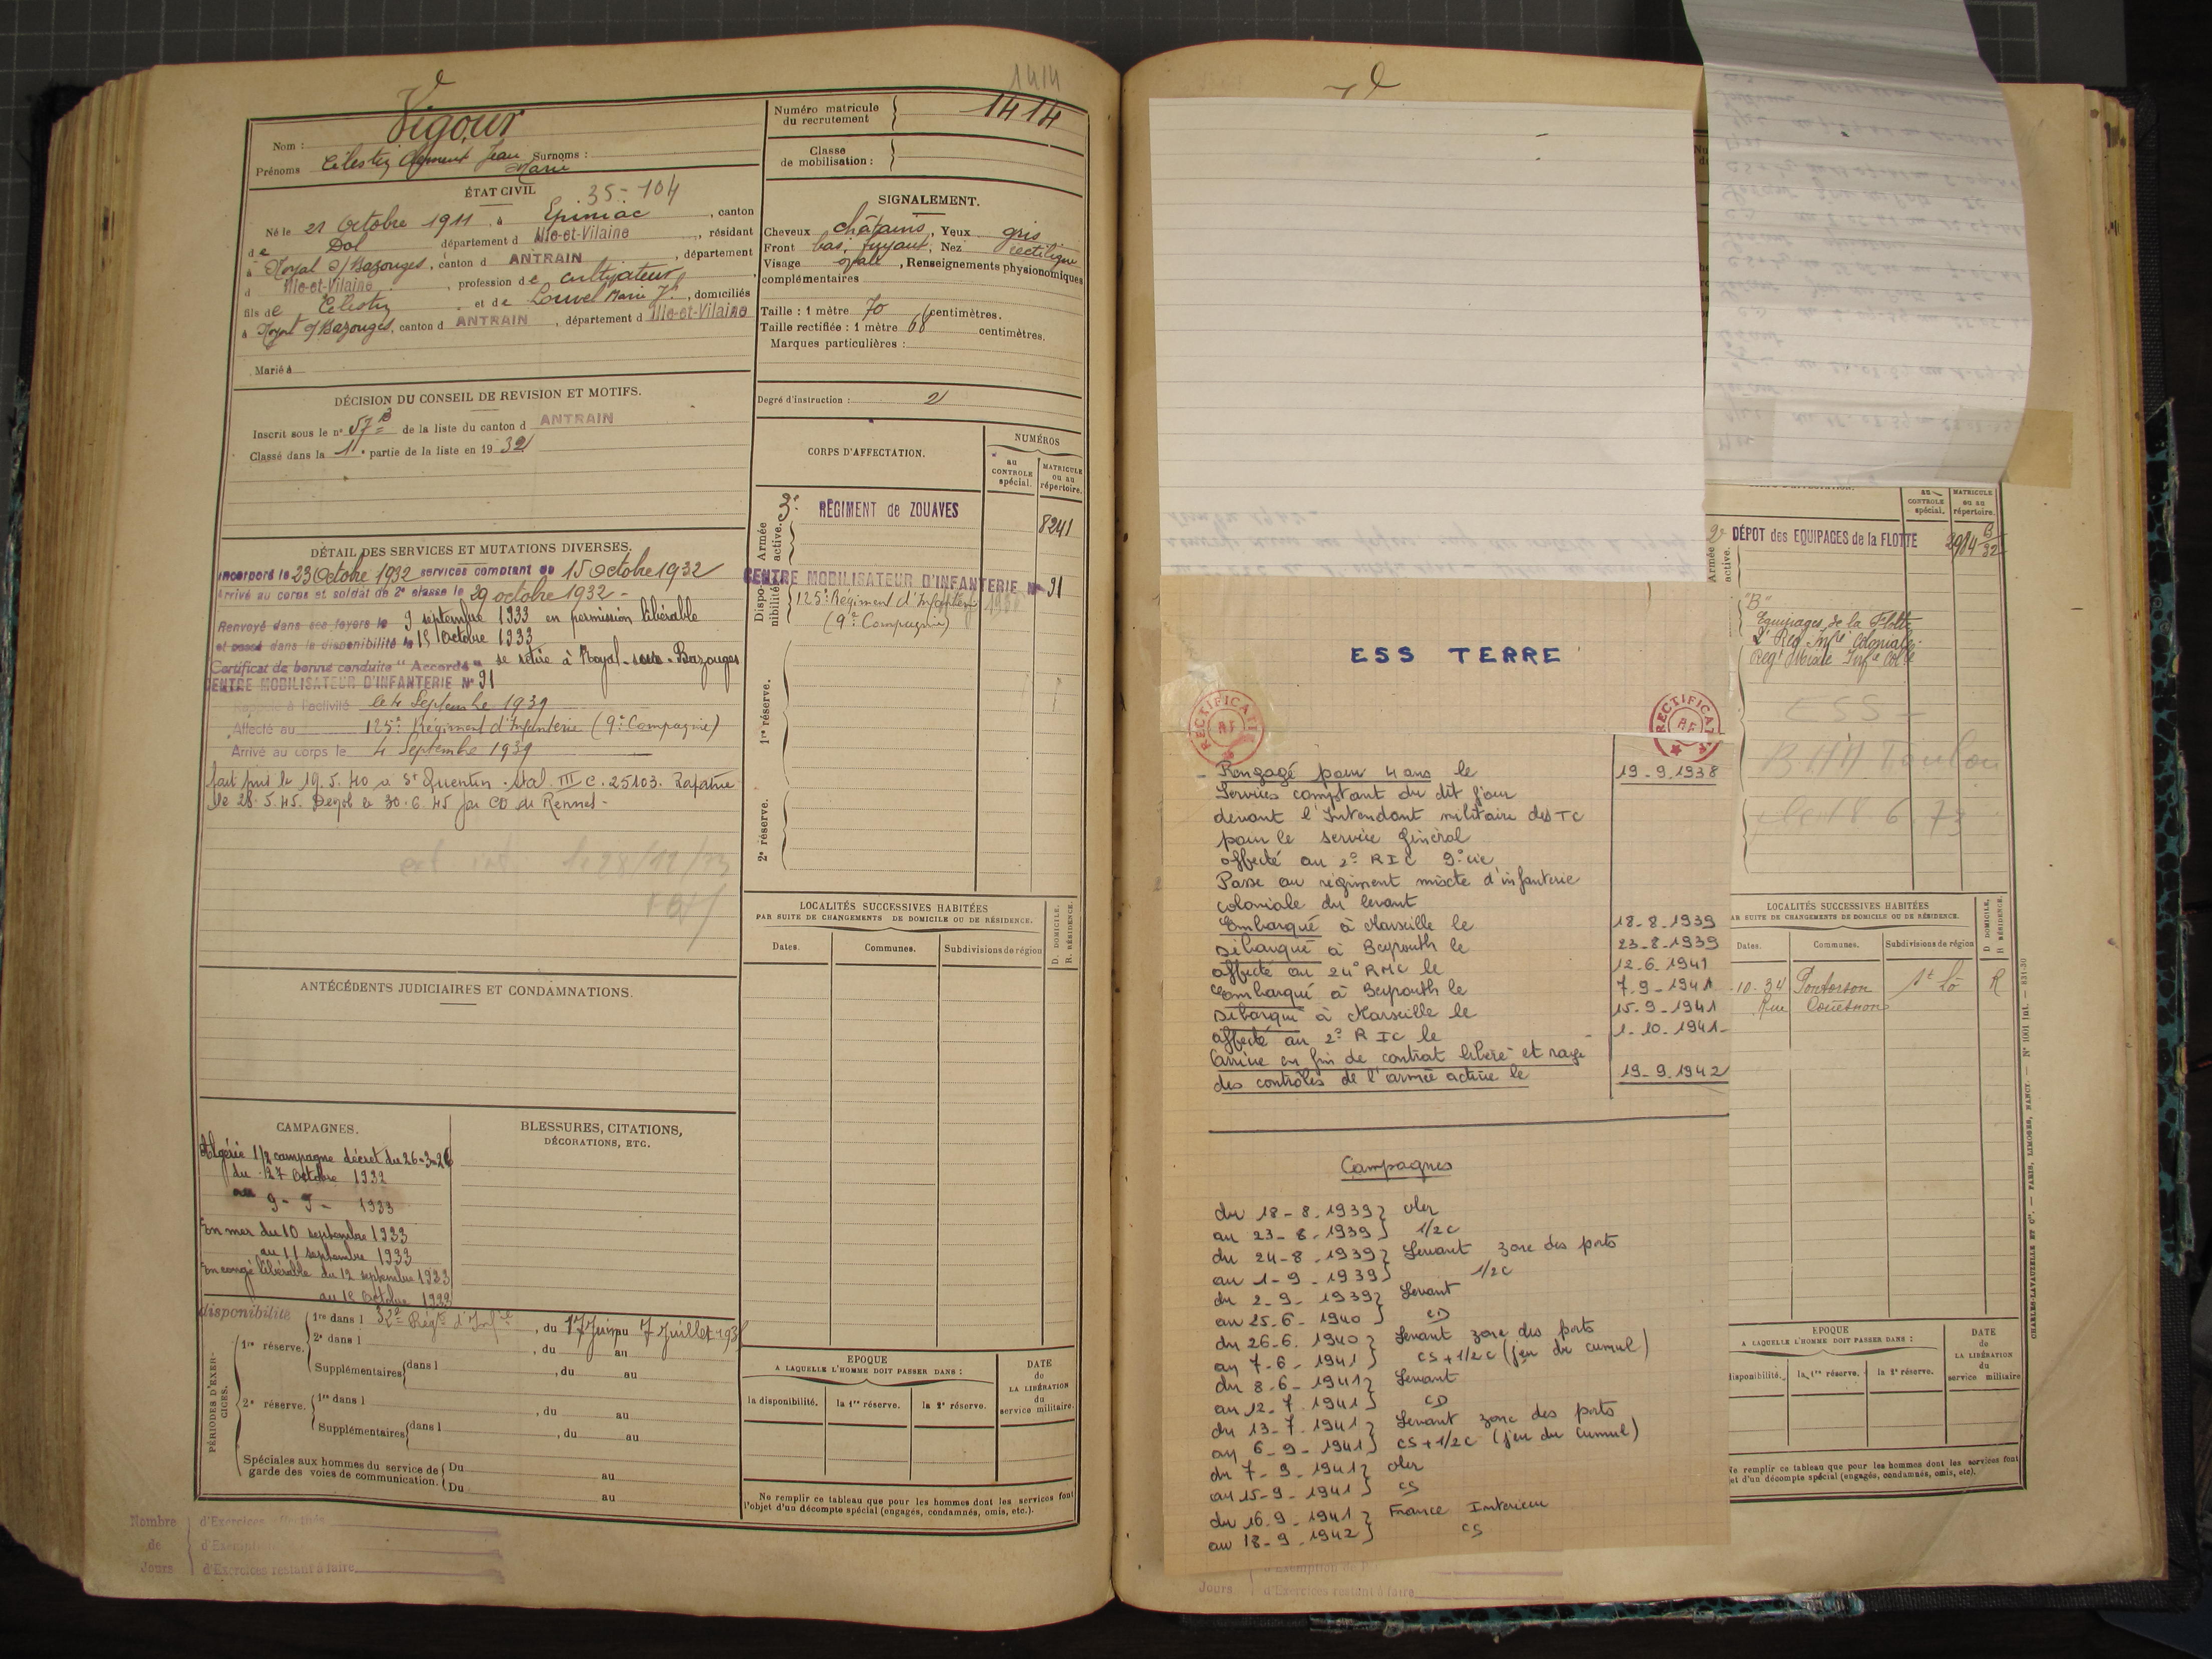 1414
Vigour
Nom :
Prénoms Célestin Clément Jean Surnoms :
Marie
ÉTAT CIVIL 35-104
Né le 21 Octobre 1911, à Epiniac, canton
de Dol département d Ille-et-Vilaine, résidant
à Noyal s/Bazouges, canton d ANTRAIN, département
d Ille-et-Vilaine, profession de cultivateur,
fils de Célestin et de Louvel Marie Jh, domiciliés
à Noyal s/Bazouges, canton d ANTRAIN, département d Ille-et-Vilaine
Marié à
DÉCISION DU CONSEIL DE REVISION ET MOTIFS.
Inscrit sous le n° 57 B de la liste du canton d ANTRAIN
Classé dans la 1e partie de la liste en 1932
DÉTAIL DES SERVICES ET MUTATIONS DIVERSES.
Incorporé le 23 Octobre 1932 services comptant du 15 Octobre 1932
Arrivé au corps et soldat de 2e classe le 29 octobre 1932 -
Renvoyé dans ses foyers le 9 septembre 1933 en permission libérable
et passé dans la disponibilité le 15 Octobre 1933
Certificat de bonne conduite "Accordé" se retire à Noyal-sous-Bazouges
CENTRE MOBILISATEUR D'INFANTERIE N° 91
Rappelé à l'activité le 4 Septembre 1939
Affecté au 125e Régiment d'Infanterie (9e Compagnie)
Arrivé au corps le 4 Septembre 1939
fait pris le 19.5.40 à St Quentin. Stal. III C. 25103. Rapatrié
le 28.5.45. Degob le 30.6.45 par CD de Rennes -
le 28/12/73
ANTÉCÉDENTS JUDICIAIRES ET CONDAMNATIONS.
CAMPAGNES.
Algérie 1/2 campagne décret du 26-3-26
du 27 Octobre 1932
au 9-9-1933
En mer du 10 septembre 1933
au 11 septembre 1933
En congé libérable du 12 septembre 1933
au 15 Octobre 1933
BLESSURES, CITATIONS,
DÉCORATIONS, ETC.
PÉRIODES D'EXERCICES.
disponibilité
1re réserve. 1re dans l 32e Régt d'Infie, du 17 Juin au 7 Juillet 193
2e dans l , du au
Supplémentaires dans l , du au
2e réserve. 1re dans l , du au
Supplémentaires dans l , du au
Spéciales aux hommes du service de garde des voies de communication. Du au
Du au
Nombre de Jours
d'Exercices effectués
d'Exemption
d'Exercices restant à faire
Numéro matricule
du recrutement 1414
Classe
de mobilisation :
SIGNALEMENT.
Cheveux châtains, Yeux gris
Front bas, fuyant, Nez rectiligne
Visage ovale, Renseignements physionomiques
complémentaires
Taille : 1 mètre 70 centimètres.
Taille rectifiée : 1 mètre 68 centimètres.
Marques particulières :
Degré d'instruction : 2
CORPS D'AFFECTATION.
NUMÉROS
au CONTROLE spécial.
MATRICULE ou au répertoire.
Armée active.
3e RÉGIMENT de ZOUAVES 8241
Disponibilité
CENTRE MOBILISATEUR D'INFANTERIE N° 91
125e Régiment d'Infanterie
(9e Compagnie)
1re réserve.
2e réserve.
LOCALITÉS SUCCESSIVES HABITÉES
PAR SUITE DE CHANGEMENTS DE DOMICILE OU DE RÉSIDENCE.
Dates. Communes. Subdivisions de région
D. DOMICILE.
R. RÉSIDENCE.
EPOQUE
A LAQUELLE L'HOMME DOIT PASSER DANS :
la disponibilité. la 1re réserve. la 2e réserve.
DATE de LA LIBÉRATION du service militaire.
Ne remplir ce tableau que pour les hommes dont les services font
l'objet d'un décompte spécial (engagés, condamnés, omis, etc.).
ESS TERRE
RECTIFICATI RF
RECTIFICA RF
Rengagé pour 4 ans le 19-9-1938
Services comptant du dit jour
devant l'Intendant militaire des TC
pour le service Général
affecté au 2e RIC 9e cie
Passe au régiment mixte d'infanterie
coloniale du levant
Embarqué à Marseille le 18-8-1939
Débarqué à Beyrouth le 23-8-1939
affecté au 24e RMC le 12-6-1941
Embarqué à Beyrouth le 7-9-1941
Débarqué à Marseille le 15-9-1941
affecté au 2e RIC le 1-10-1941-
Arrive en fin de contrat libéré et rayé
des contrôles de l'armée active le 19-9-1942
Campagnes
du 18-8-1939 Mer
au 23-8-1939 1/2c
du 24-8-1939 Levant zone des ports
au 1-9-1939 1/2c
du 2-9-1939 Levant
au 25-6-1940 CD
du 26-6-1940 Levant zone des ports
au 7-6-1941 CS+1/2c (jeu du cumul)
du 8-6-1941 Levant
au 12-7-1941 CD
du 13-7-1941 Levant zone des ports
au 6-9-1941 CS+1/2c (jeu du cumul)
du 7-9-1941 Mer
au 15-9-1941 CS
du 16-9-1941 France Interieur
au 18-9-1942 CS
d'Exemption
Jours d'Exercices restant à faire
AU CONTROLE spécial.
MATRICULE ou au répertoire.
Armée active.
2e DÉPOT des EQUIPAGES de la FLOTTE
"B"
Equipages de la Flotte
2e Reg Infie Coloniale.
Regt Mixte Infie Colle
ESS -
B.H.H Toulon
le 18.6.73
LOCALITÉS SUCCESSIVES HABITÉES
AR SUITE DE CHANGEMENTS DE DOMICILE OU DE RÉSIDENCE.
Dates. Communes. Subdivisions de région
D DOMICILE,
R RÉSIDENCE.
-10-34 Pontorson St Lô R
Rue Couësnon
EPOQUE
A LAQUELLE L'HOMME DOIT PASSER DANS :
disponibilité. la 1re réserve. la 2e réserve.
DATE de LA LIBÉRATION du service militaire
Ne remplir ce tableau que pour les hommes dont les services font
et d'un décompte spécial (engagés, condamnés, omis, etc).
CHARLES-LAVAUZELLE ET Cie. — PARIS, LIMOGES, NANCY. — N° 1001 Int. — 831-30